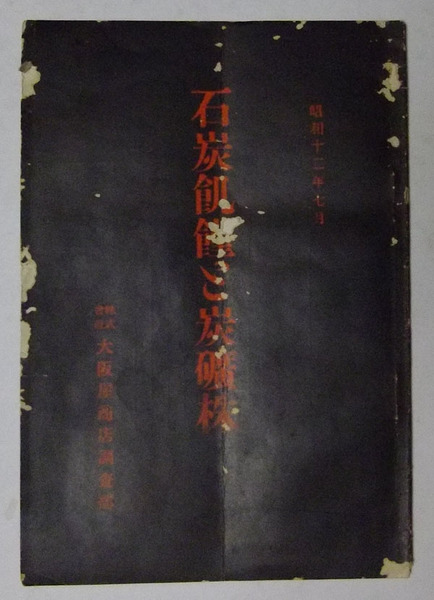 昭和十二年七月
石炭飢饉と炭礦株
株式
會社
大阪屋商店調査部